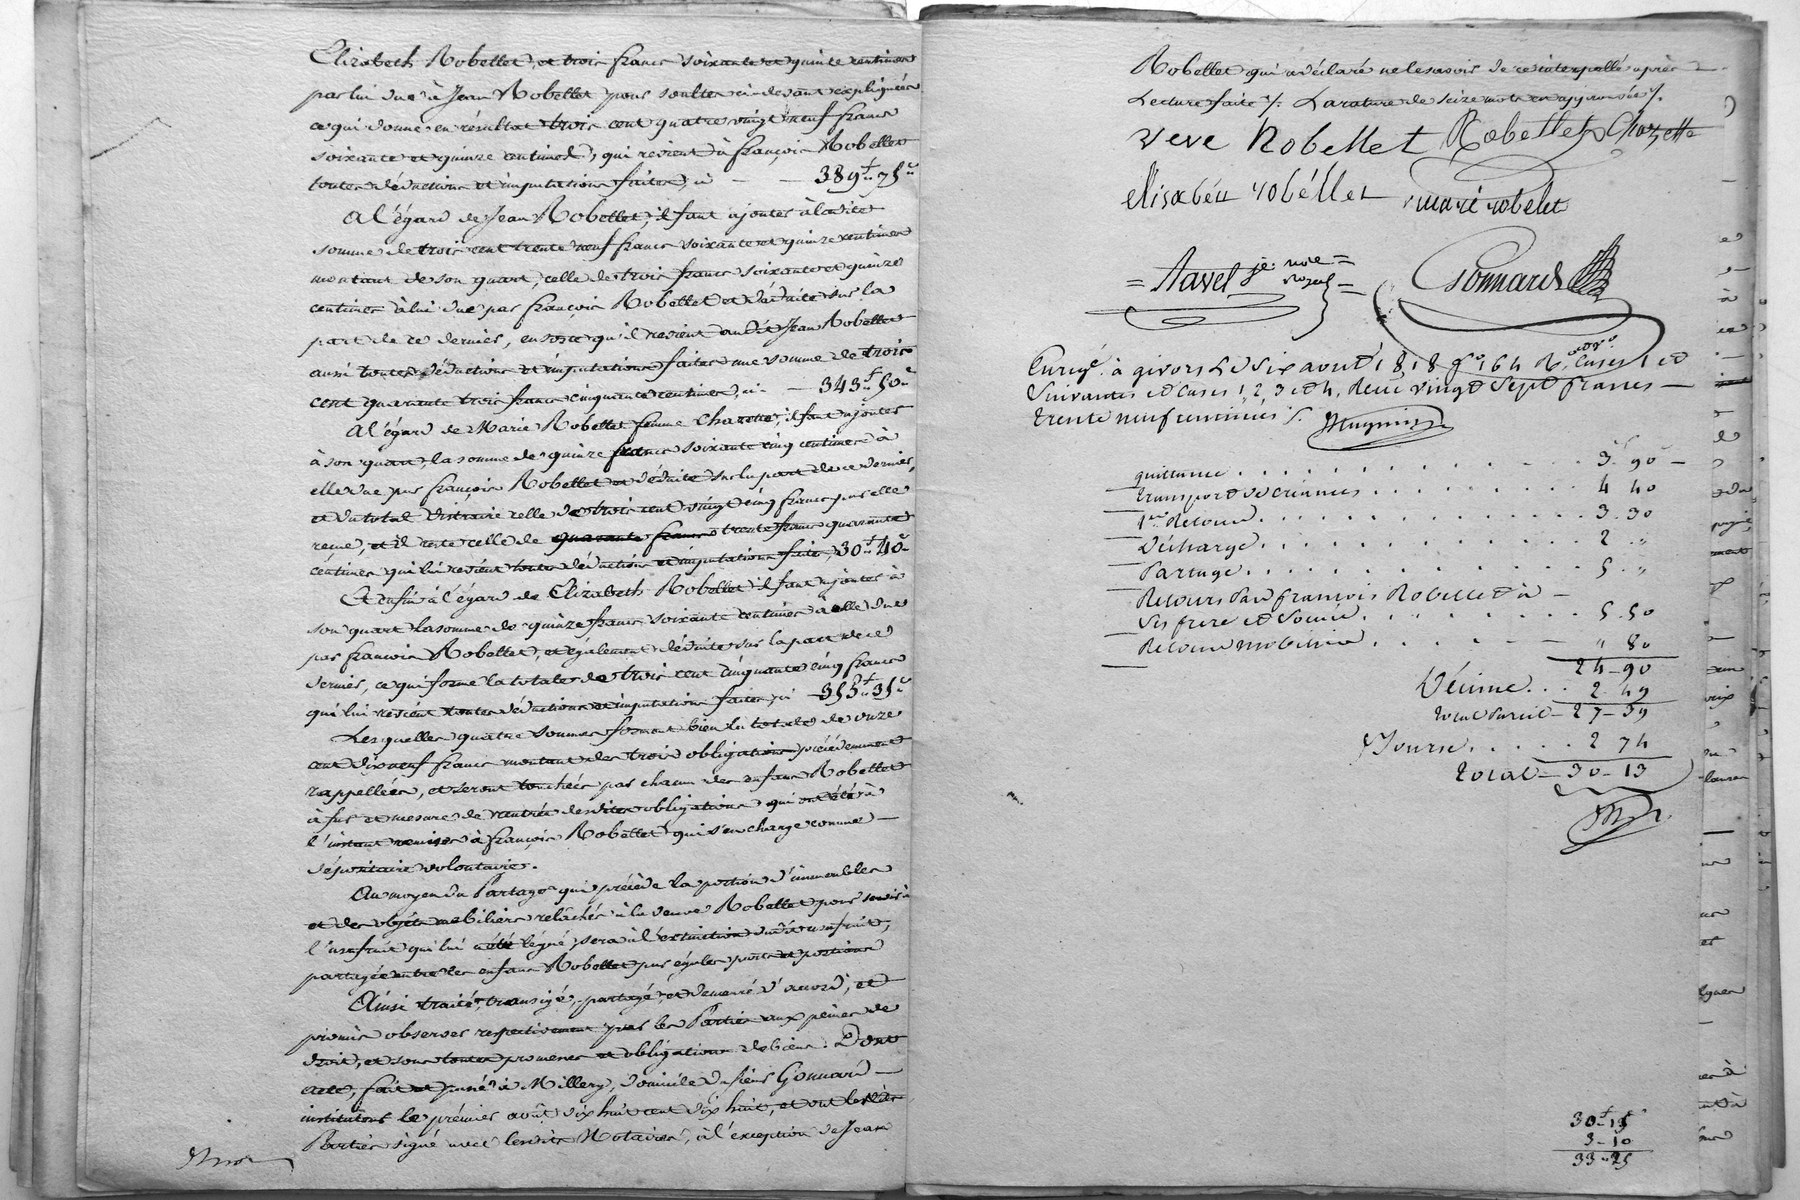 Elizabeth Robellet, et trois francs soixante et quinze centimes
par lui due à Jean Robellet pour soultes ci devant expliquées
ce qui donne en résultat trois cent quatre vingt neuf francs
soixante et quinze centimes, qui revient à françois Robellet
toutes déductions et imputations faites, ci — — 389f..75c
A l'égard de Jean Robellet, il faut ajouter à ladite
somme de trois cent trente neuf francs soixante et quinze centimes
montant de son quart, celle de trois francs soixante et quinze
centimes à lui due par françois Robellet et déduite sur la
part de ce dernier, ensorte qu'il revient audit Jean Robellet
aussi toutes déductions et imputations faites une somme de trois
cent quarante trois francs cinquante centimes, ci — 343f..50c
A l'égard de Marie Robellet femme Chazette, il faut ajouter
à son quart, la somme de quinze francs soixante cinq centimes à
elle due par françois Robellet et déduite sur la part de ce dernier,
et du total distraire celle de trois cent vingt cinq francs par elle
reçue, et il reste celle de quarante francs trente francs quarante
centimes qui lui revient toutes déductions et imputations faites, 30f..40c
Et enfin à l'égard de Elizabeth Robellet il faut ajouter à
son quart la somme de quinze francs soixante centimes à elle due
par françois Robellet, et également déduite sur la part de ce
dernier, ce qui forme la totale de trois cent cinquante cinq francs
qui lui revient toutes déductions et imputations faites, ci — 355f..35c
Lesquelles quatre sommes forment bien la totale de onze
cent dix neuf francs montant des trois obligations précédemment
rappellées, et seront touchées par chacun des enfans Robellet
à fur et mesure de rentrée desdites obligations qui ont été à
l'instant remises à françois Robellet qui s'en charge comme —
dépositaire volontaire.
Au moyen du Partage qui précède la portion d'immeubles
et des objets mobiliers relâchés à la veuve Robellet pour servir à
l'usufruit qui lui a été légué, sera à l'extinction dudit usufruit,
partagée entre les enfans Robellet par égales parts et portions
Ainsi traité, transigé, partagé, et demeuré d'accord, et
promis observer respectivement par les Parties aux peines de
droit, et sous toutes promesses et obligations de biens. Dont
acte, fait et passé à Millery, domicile du sieur Gonnard —
instituteur le premier août dix huit cent dix huit, et ont lesdites
Parties signé avec lesdits Notaires, à l'exception de Jean
Robellet qui a déclaré ne le savoir de ce interpellé après —
Lecture faite ./. La rature de seize mots en approuvée ./.
veve Robellet Robellet Chazette
élisabéth robéllet marié robelet
= Navel je. nore = royal =
Gonnard
Enregé. à givors Le Six aout 1818 fo. 164 Ro. Cases 1 et
Suivantes et Cases 1, 2, 3 et 4. Recu vingt Sept francs —
trente neuf centimes /.
quittance . . . . . 3f. 90c —
transport de créances . . . . . 4 40
1er Retour . . . . . 3. 30
Décharge . . . . . 2 "
Partage . . . . . 5. "
Retours Par françois Robellet à —
Ses frere et Soeurs . . . . . 5. 50
Retour mobilier . . . . . " 80
24—90
Décime . . . 2. 49
total Pareil — 27—39
. . . . . 2 74
total — 30—13
30f—15
3—10
33—25